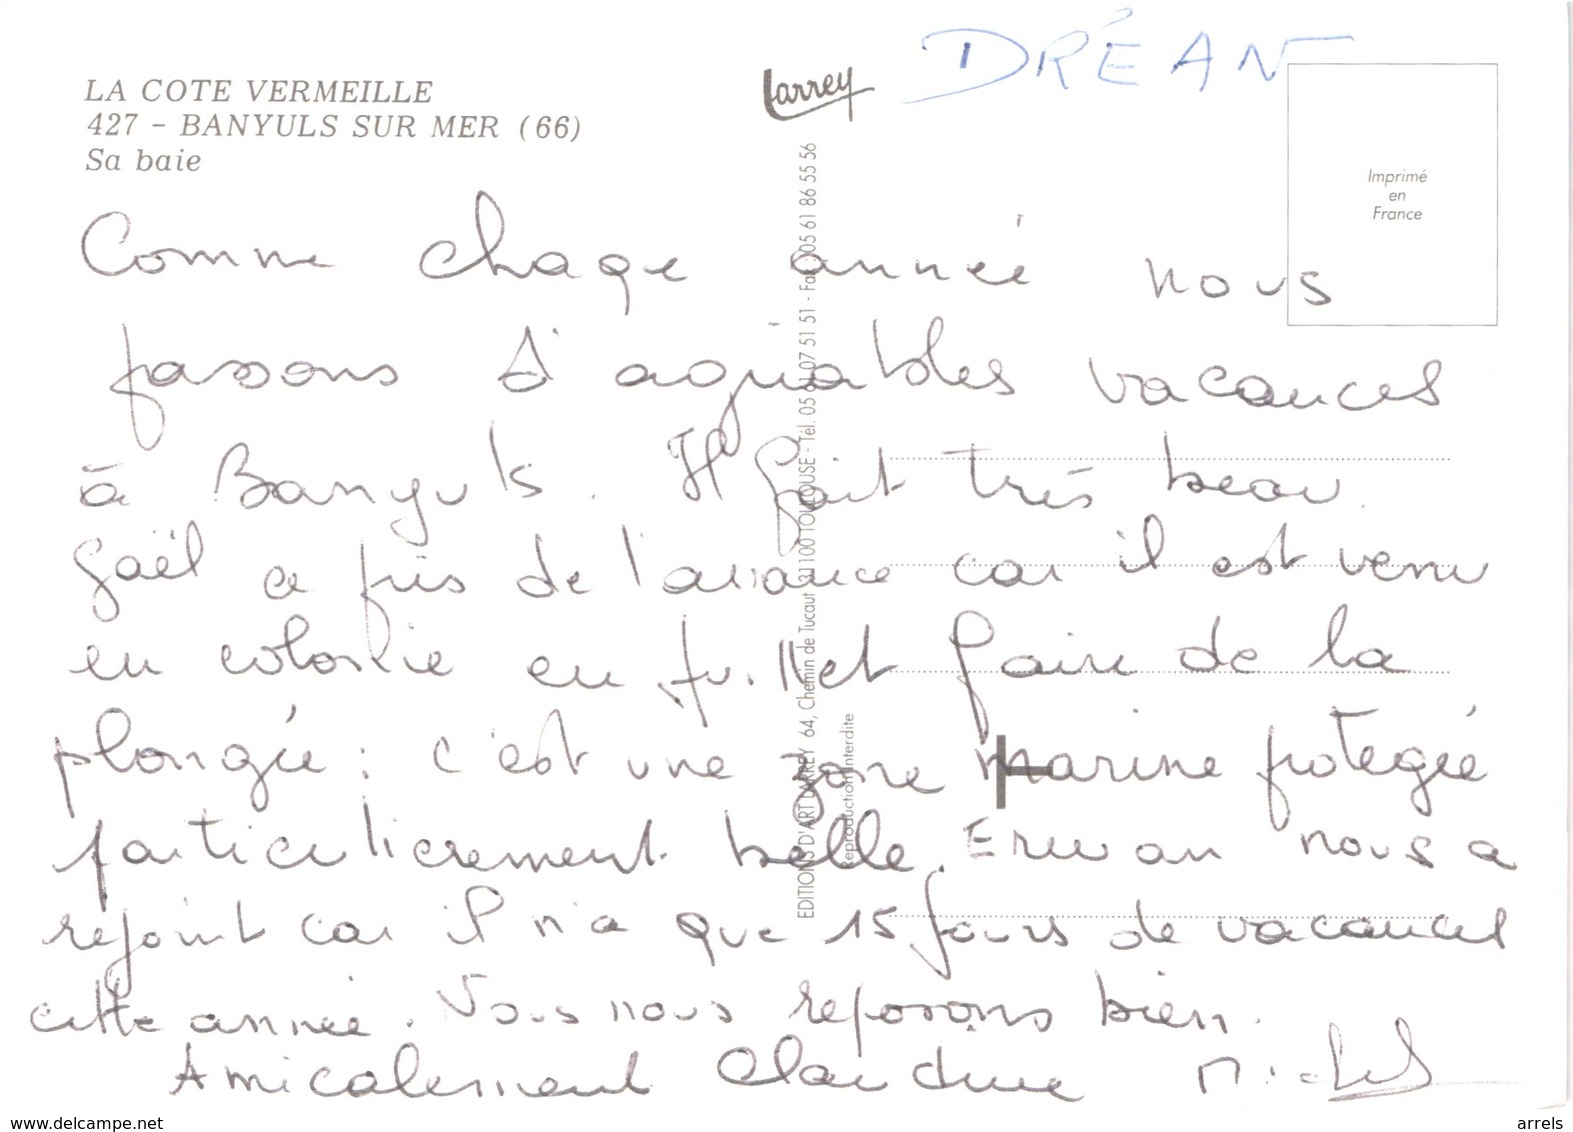 DRÉAN
LA COTE VERMEILLE
427 - BANYULS SUR MER (66)
Sa baie
Larrey
Imprimé
en
France
EDITIONS D'ART LARREY 64, Chemin de Tucaut 31100 TOULOUSE - Tél. 05 61 07 51 51 - Fax : 05 61 86 55 56
Reproduction interdite
Comme chaqe année nous
passons d'agréables vacances
à Banyuls. Il fait très beau.
Gaël a pris de l'avance car il est venu
en colonie en juillet faire de la
plongée : c'est une zone marine protégée
particulièrement belle. Erwan nous a
rejoint car il n'a que 15 jours de vacances
cette année. Nous nous reposons bien.
Amicalement Claudine Michel
www.delcampe.net
arrels